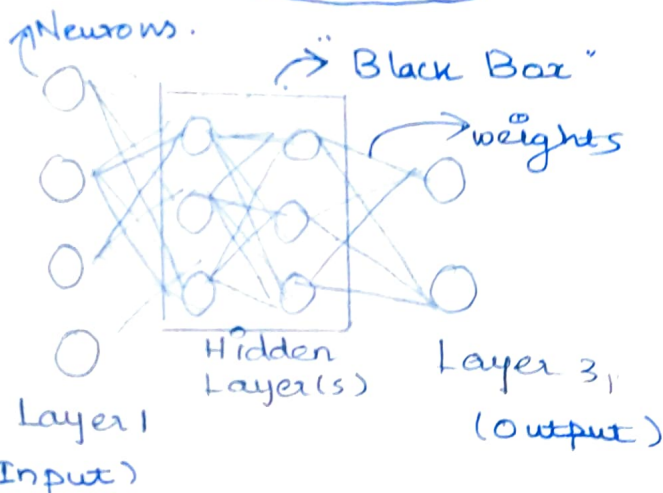 Neurons.
"Black Box"
weights
Hidden
Layer(s)
Layer 3,
(output)
Layer 1
Input)